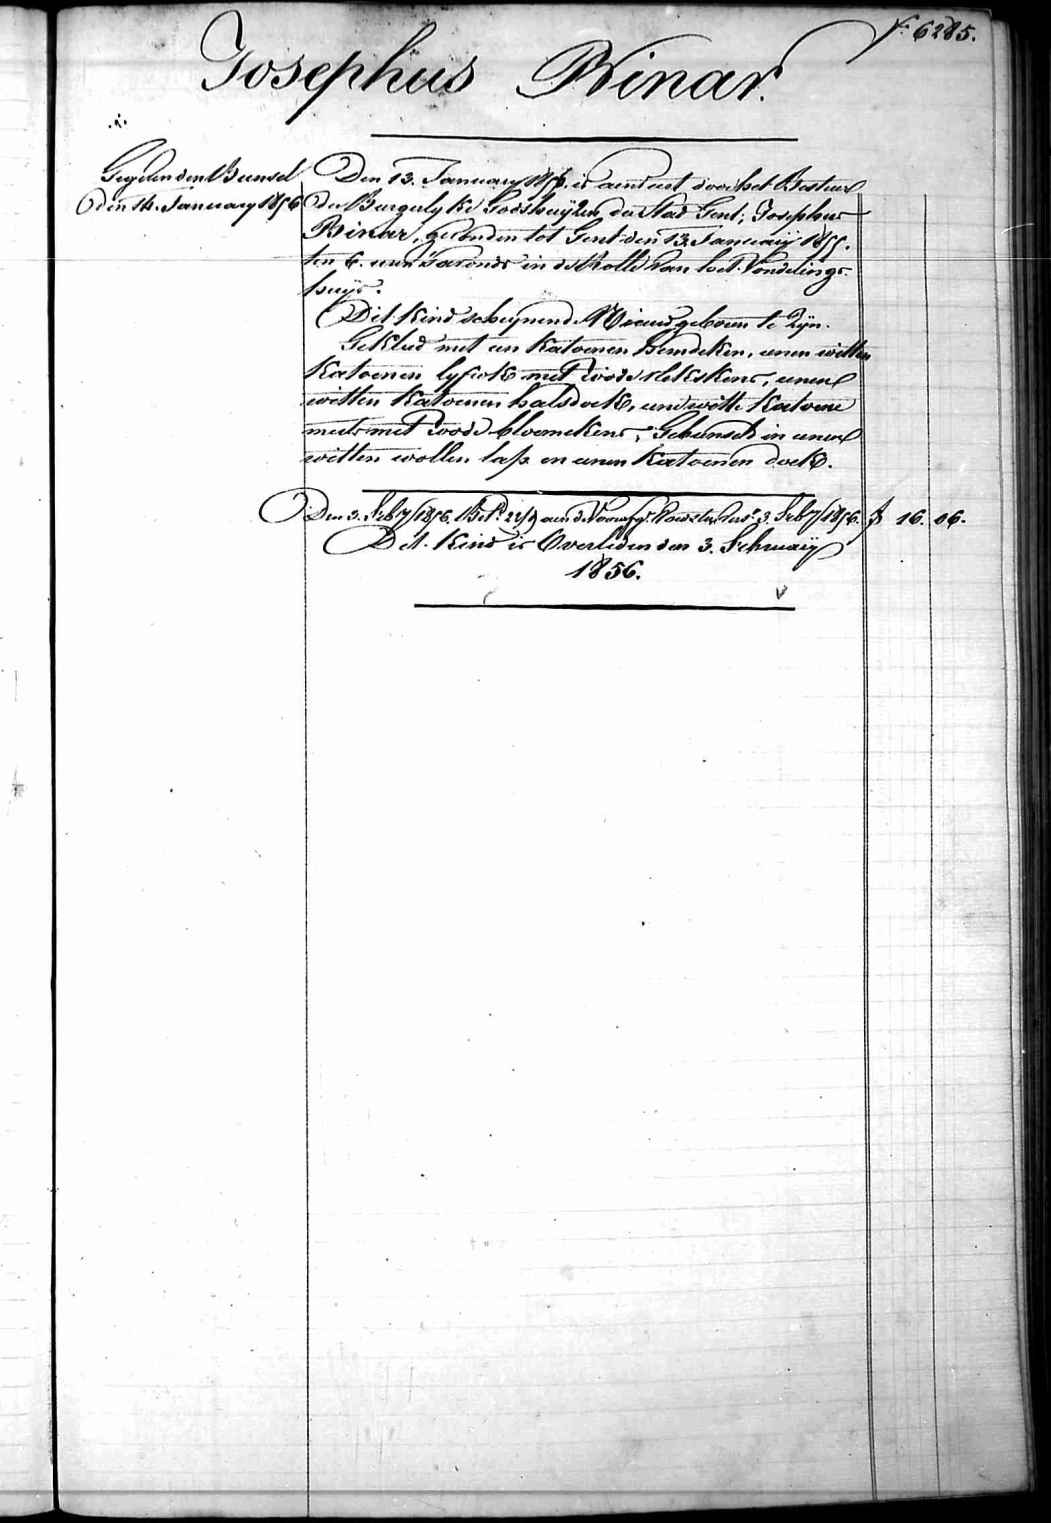 f° 6285.
Josephus Binar.
Gegeven den Bunsel
den 14. January 1856
Den 13. January 1856. is aenveert door het Bestuur
der Burgerlyke Godshuyzen der Stad Gent, Josephus
Binar, gevonden tot Gent den 13. January 1855.
ten 6. uren s'avonds in de Rolle van het Vondelings-
huys.
Dit kind scheynende Nieuwgeboren te zyn.
Gekleed met een Katoenen hemdeken, eenen witten
Katoenen lyfrok met roode vlekskens, eenen
witten Katoenen halsdoek, eene witte Katoene
muts met roode bloemekens, Gebunseld in eenen
witten wollen lap en eenen Katoenen doek.
Den 3. Feby 1856. Bet. aen de 3. Feby 1856. f 16. 06.
Dit Kind is Overleden den 3. February
1856.